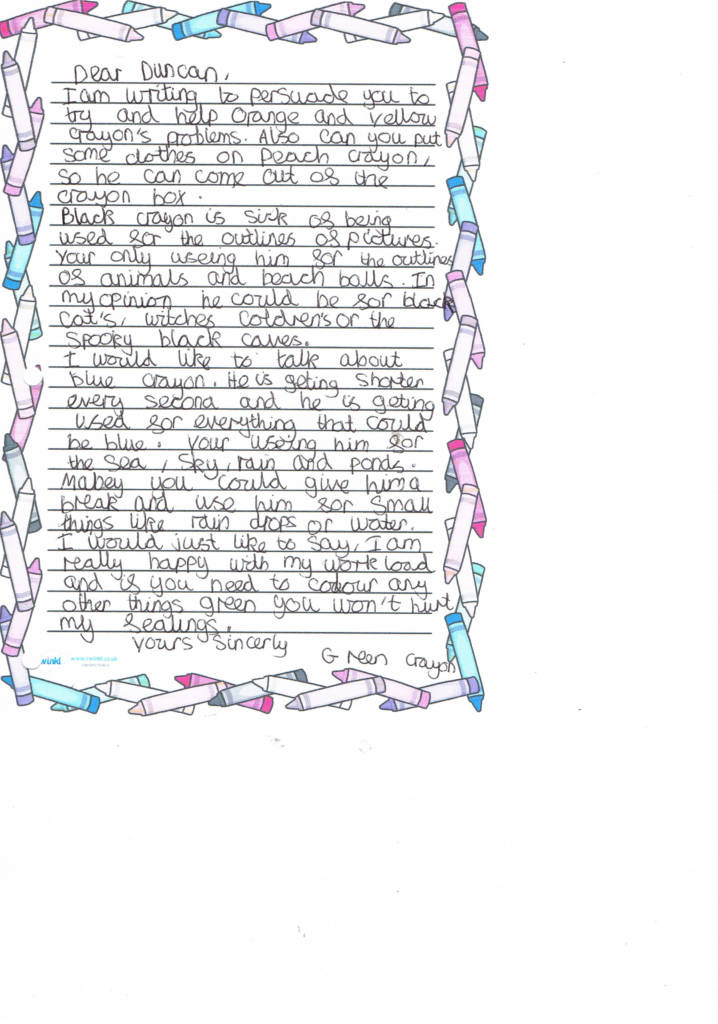 Dear Duncan,
I am writing to persuade you to
try and help Orange and yellow
crayon's problems. Also can you put
some clothes on Peach crayon,
so he can come out of the
crayon box.
Black crayon is sick of being
used for the outlines of pictures.
Your only useing him for the outlines
of animals and beach balls. In
my opinion he could be for black
cat's, witches Coldren's or the
spooky black caves.
I would like to talk about
blue crayon. He is geting shorter
every second and he is geting
used for everything that could
be blue. Your useing him for
the sea, sky, rain and ponds.
Mabey you could give him a
break and use him for small
things like rain drops or water.
I would just like to say, I am
really happy with my work load
and if you need to colour any
other things green you won't hurt
my fealings.
yours sincerly
Green Crayon
twinkl www.twinkl.co.uk